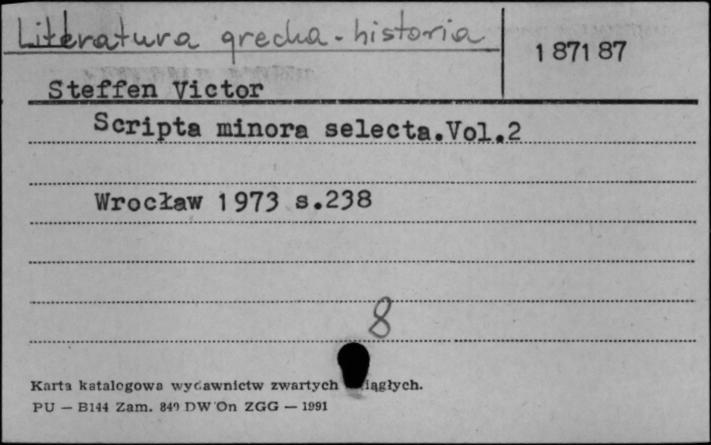 Literatura grecka - historia
187187
Steffen Victor
Scripta minora selecta.Vol.2
Wrocław 1973 s.238
8
Karta katalogowa wydawnictw zwartych ciągłych.
PU — B144 Zam. 849 DW On ZGG — 1991